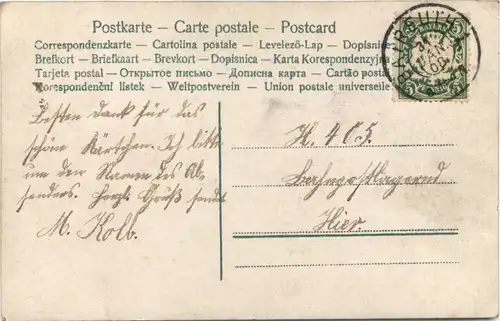 Postkarte – Carte postale – Postcard
Correspondenzkarte – Cartolina postale – Levelező-Lap – Dopisnice
Brefkort – Briefkaart – Brevkort – Dopisnica – Karta Korespondenzyjna
Tarjeta postal – Открытое письмо – Дописна карта – Cartão postal
Korespondenční listek – Weltpostverein – Union postale universelle
BAYREUTH
5
5
Besten Dank für das
schöne Kärtchen. Ich bitte
um den Namen des Ab-
senders. Herzl. Grüße sendet
M. Kolb.
H. 405.
Bahnpostlagernd
Hier.